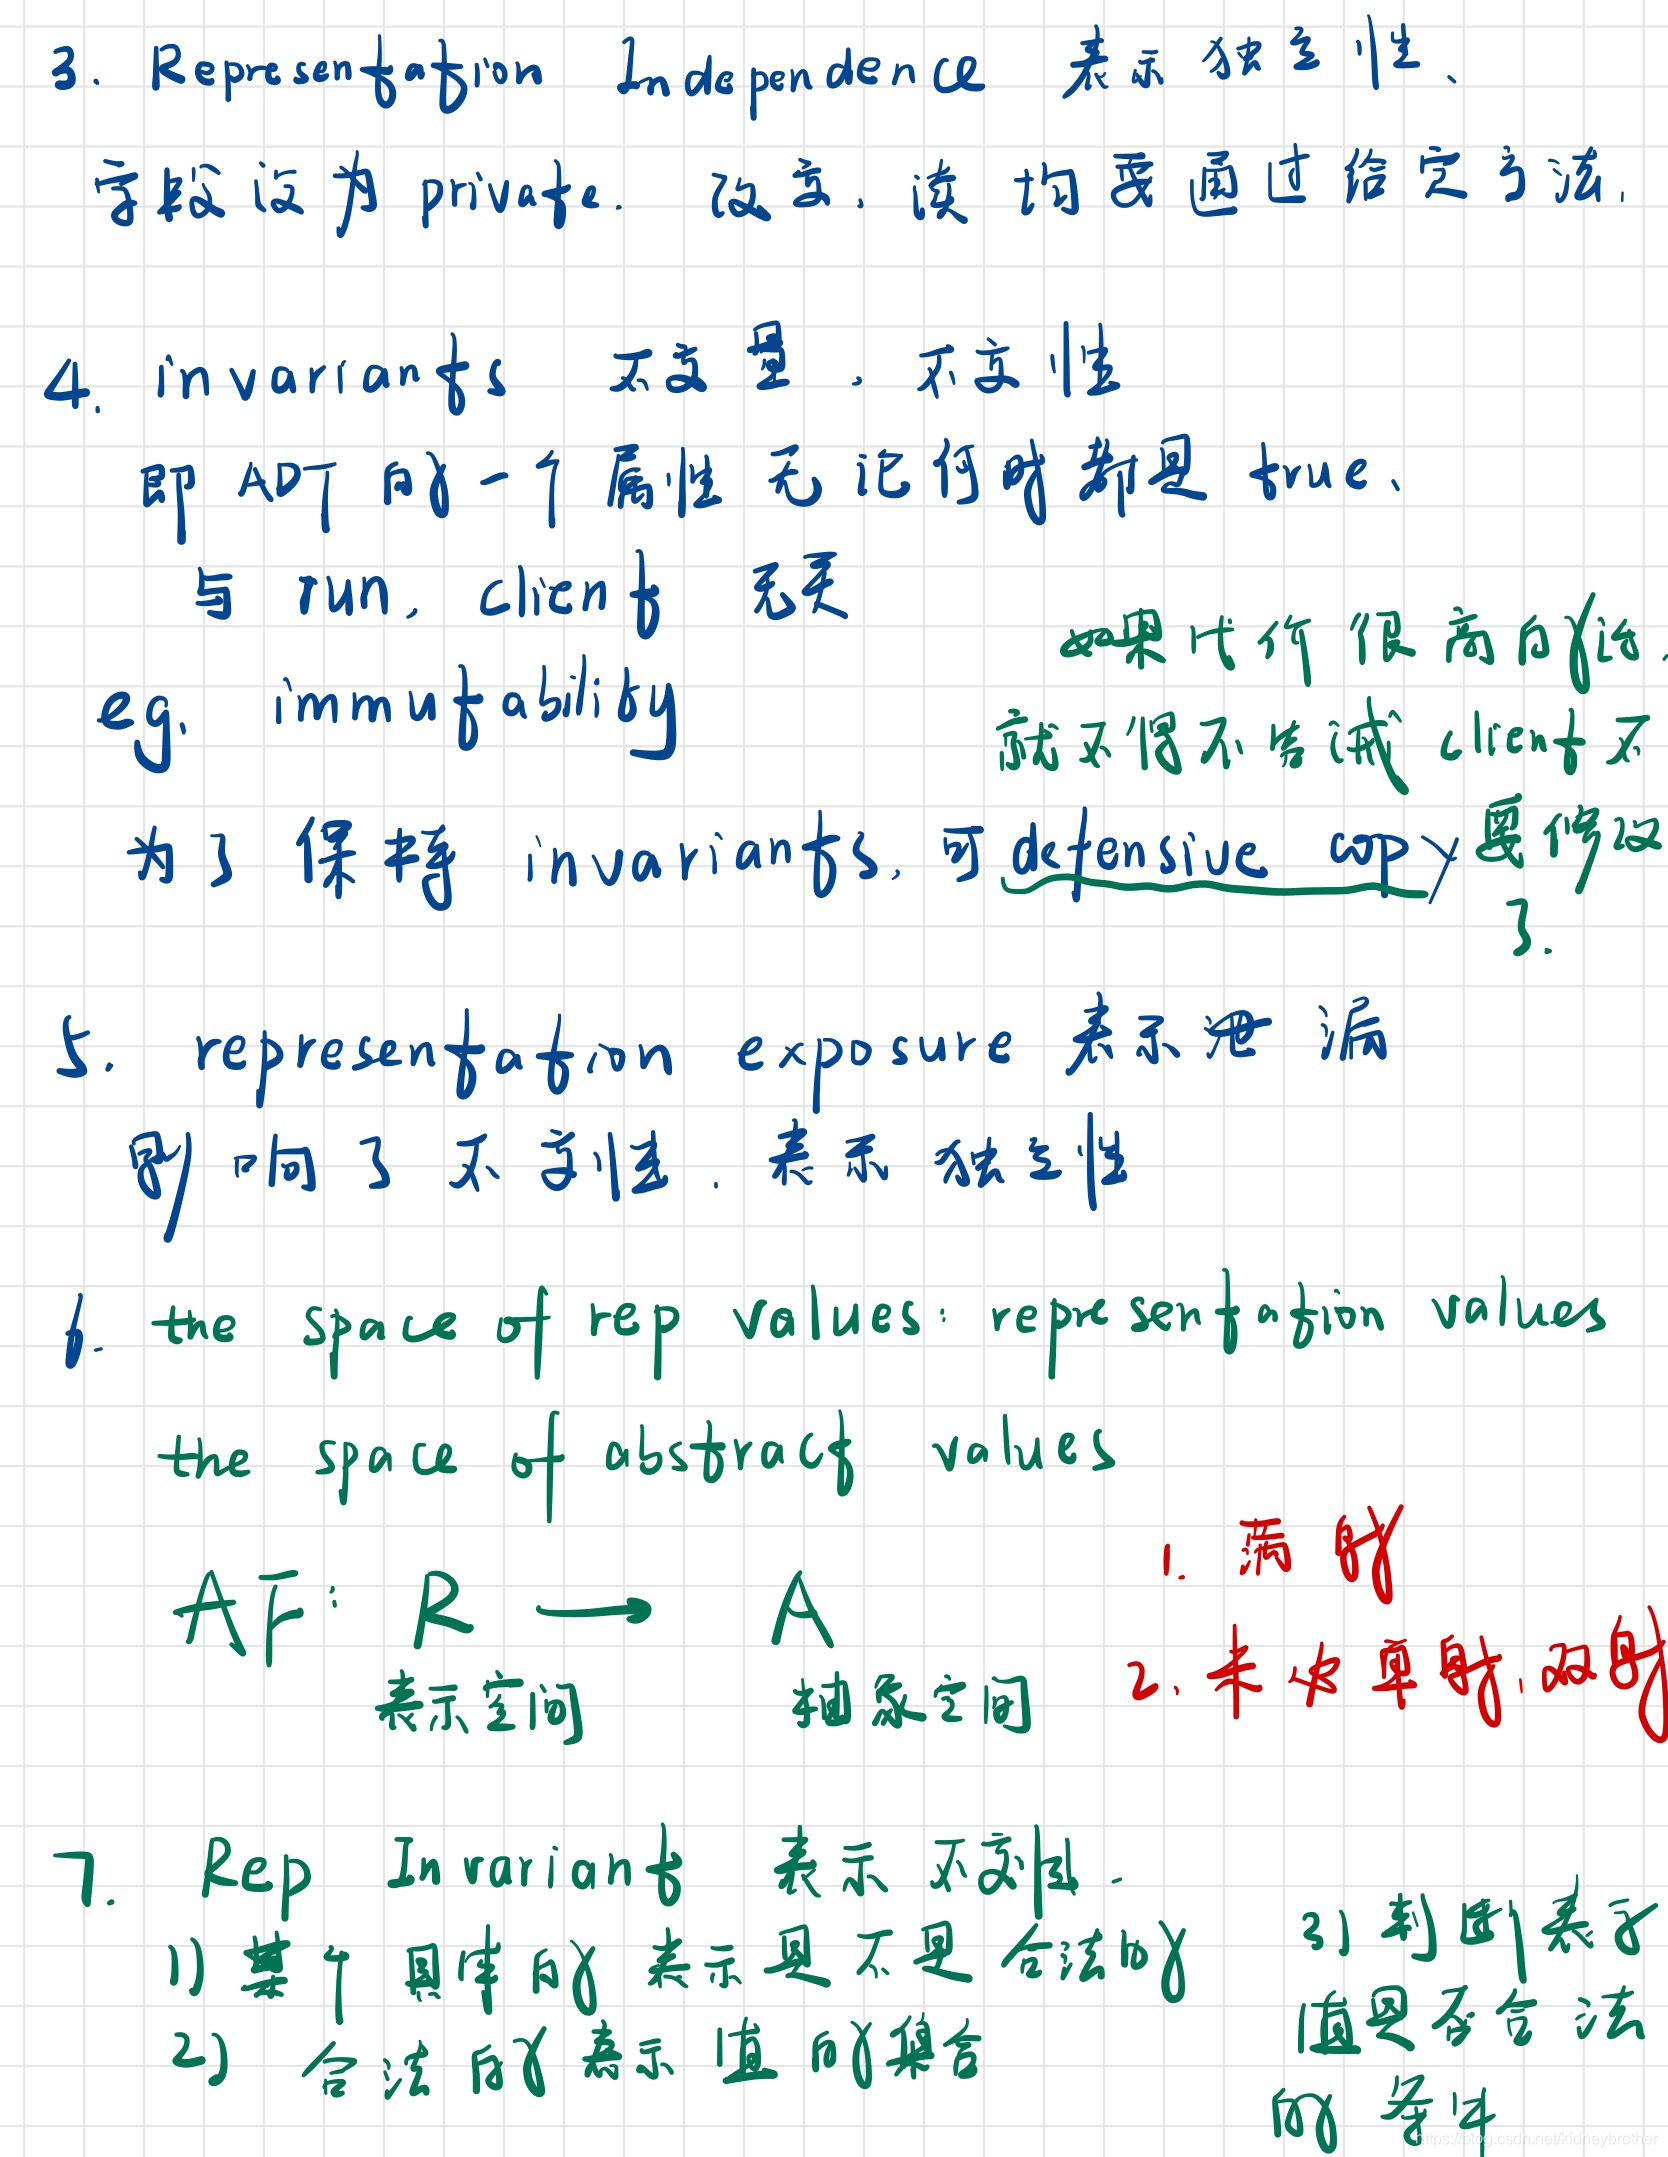 3. Representation Independence 表示独立性、
字段设为 private. 改变、读 均要通过给定方法.
4. invariants 不变量、不变性
即 ADT 的一个属性 无论何时都是 true、
与 run, client 无关
eg. immutability
为了保持 invariants, 可 defensive copy
如果代价很高的话,
就不得不告诫 client 不
要修改
了.
5. representation exposure 表示泄漏
影响了不变性、表示独立性
6. the space of rep values: representation values
the space of abstract values
AF: R → A
表示空间 抽象空间
1. 满射
2. 未必单射, 双射
7. Rep Invariant 表示不变性.
1) 某个具体的表示是不是合法的
2) 合法的表示值的集合
3) 判断表示
值是否合法
的条件
https://blog.csdn.net/kidneybrother